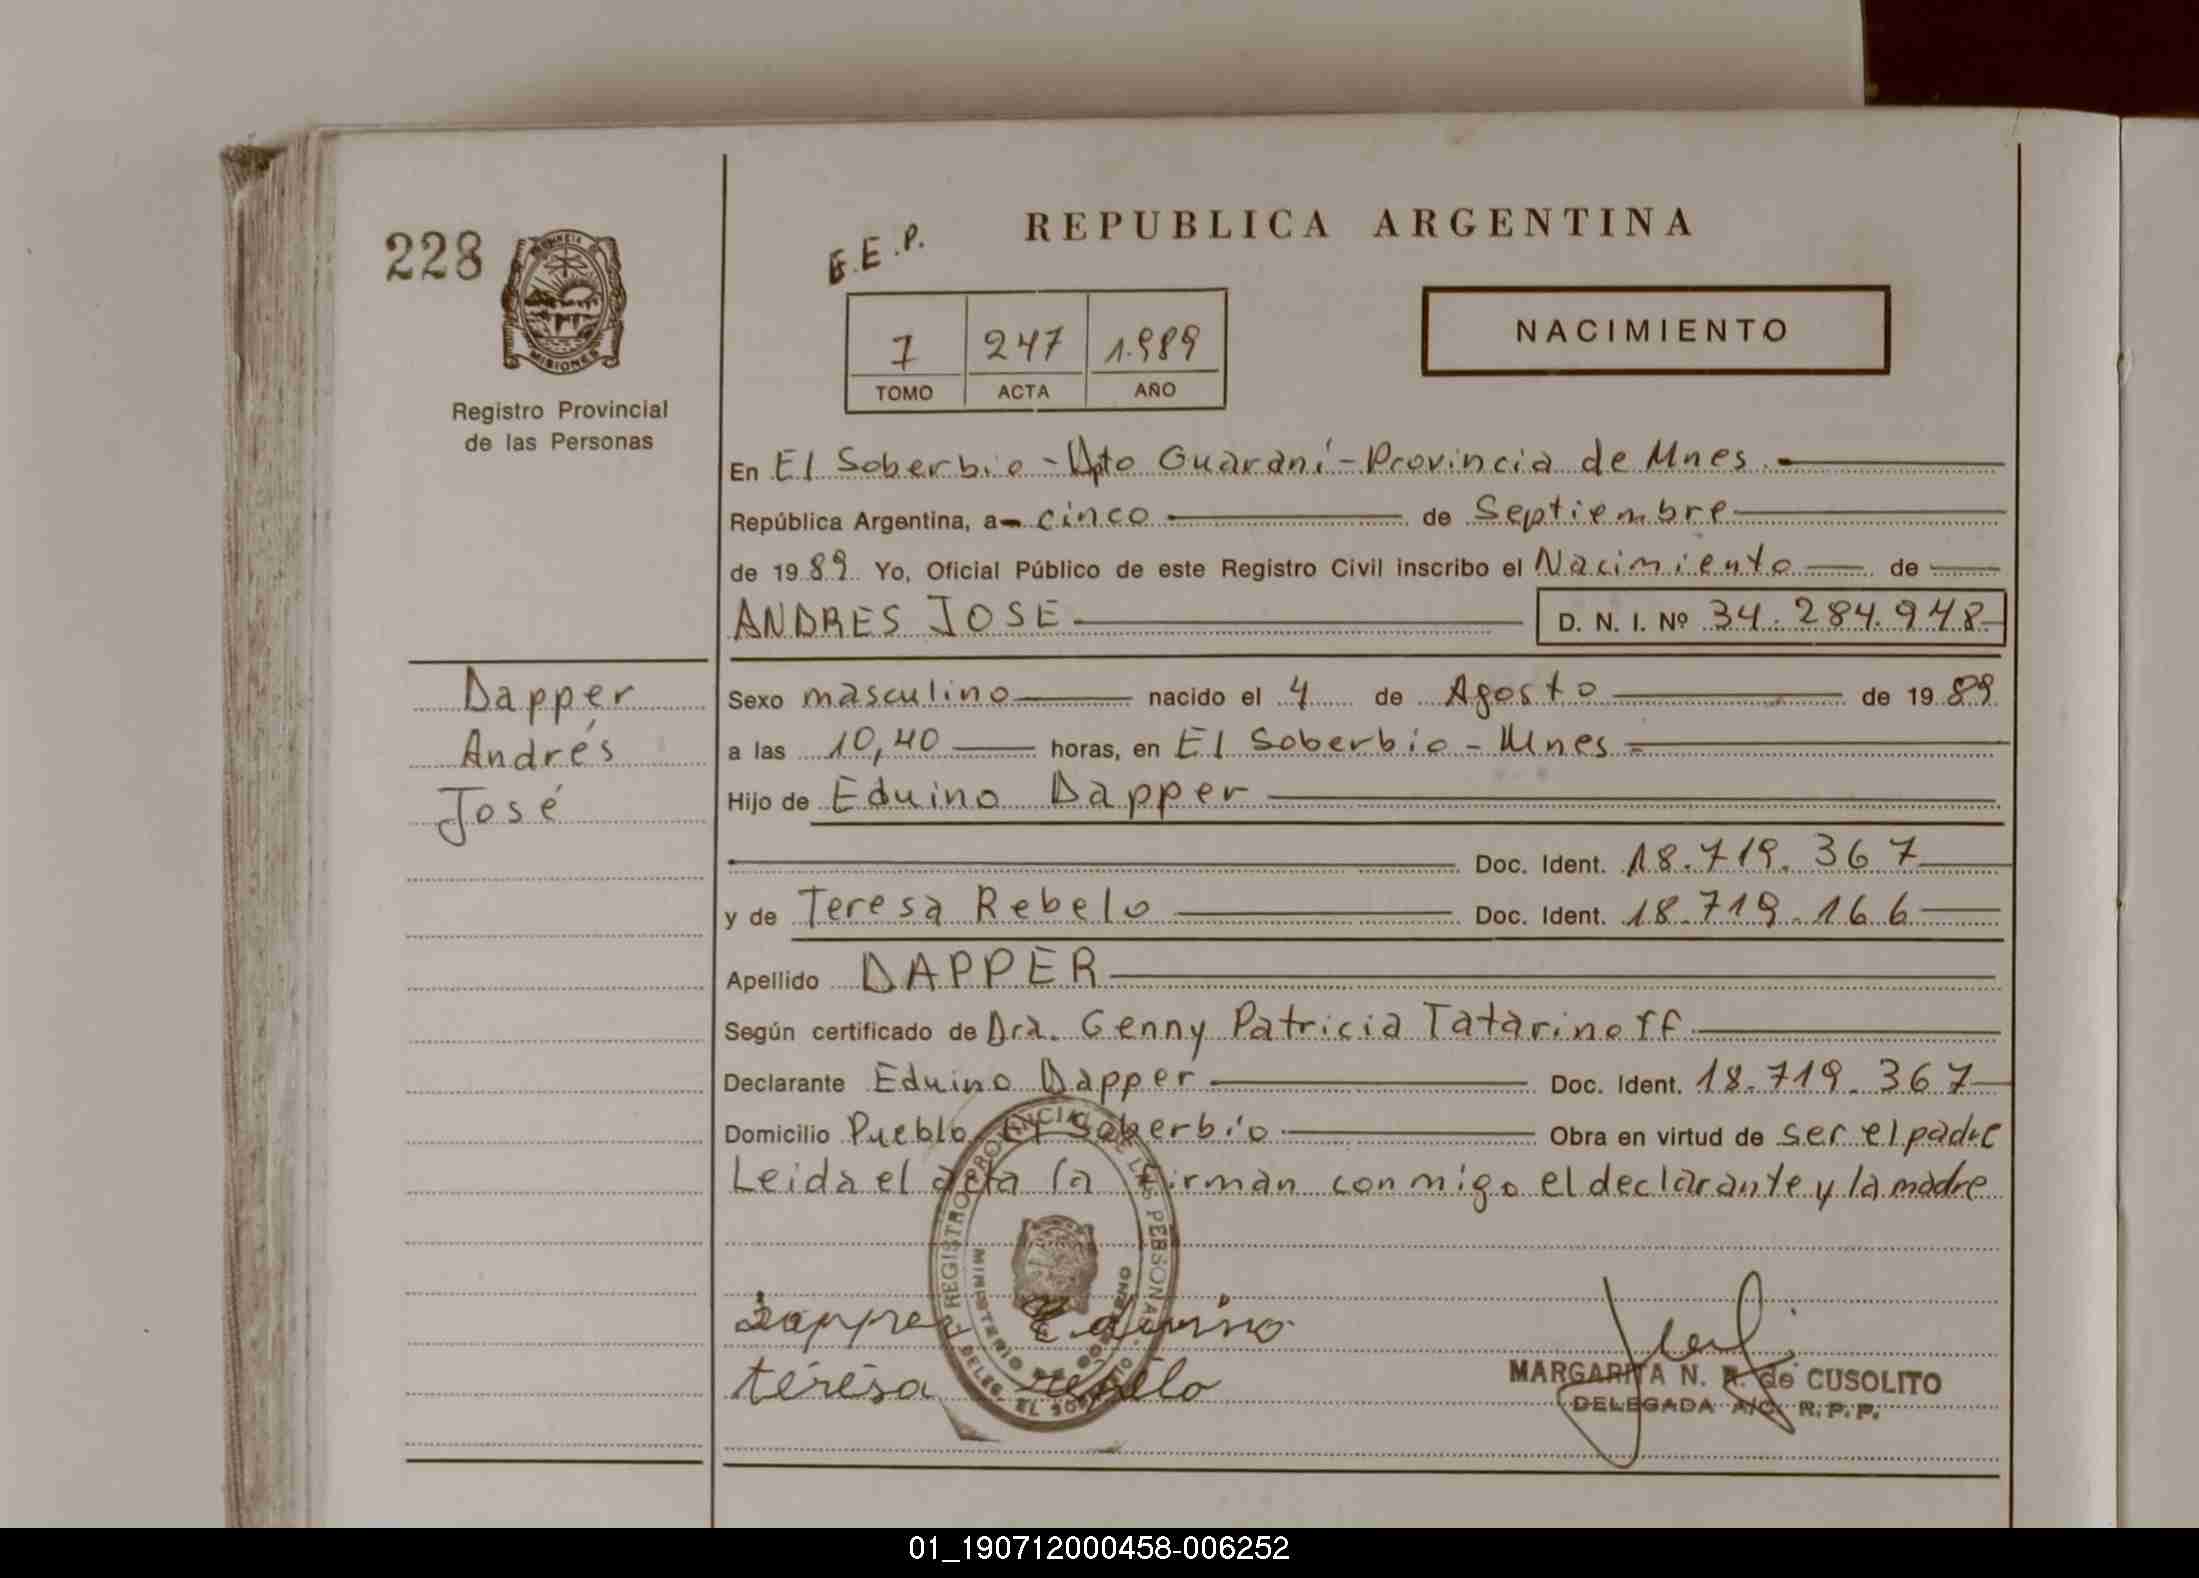 228
PROVINCIA DE
MISIONES
Registro Provincial
de las Personas
REPUBLICA ARGENTINA
E.E.P.
7 247 1.989
TOMO ACTA AÑO
NACIMIENTO
En El Soberbio - Dpto Guaraní - Provincia de Mnes.
República Argentina, a cinco de Septiembre
de 1989 Yo, Oficial Público de este Registro Civil inscribo el Nacimiento de
ANDRES JOSE D. N. I. Nº 34.284.948
Dapper
Andrés
José
Sexo masculino nacido el 4 de Agosto de 1989
a las 10,40 horas, en El Soberbio - Mnes
Hijo de Eduino Dapper
Doc. Ident. 18.719.367
y de Teresa Rebelo Doc. Ident. 18.719.166
Apellido DAPPER
Según certificado de Dra. Genny Patricia Tatarinoff
Declarante Eduino Dapper Doc. Ident. 18.719.367
Domicilio Pueblo El Soberbio Obra en virtud de ser el padre
Leida el acta la firman conmigo el declarante y la madre
REGISTRO PROVINCIAL DE LAS PERSONAS
MINISTERIO DE GOBIERNO
DELEG. EL SOBERBIO
Dapper Eduino
teresa rebelo
MARGARITA N. R. de CUSOLITO
DELEGADA A/C. R.P.P.
01_190712000458-006252